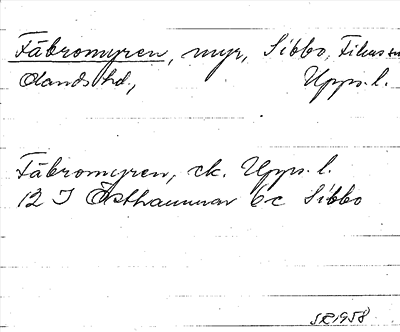 Fäbromyren, myr, Sibbo, Films sn
Olands hd, Upps. l.
Fäbromyren, ek. Upps. l.
12 I Östhammar 6c Sibbo
SR 1958